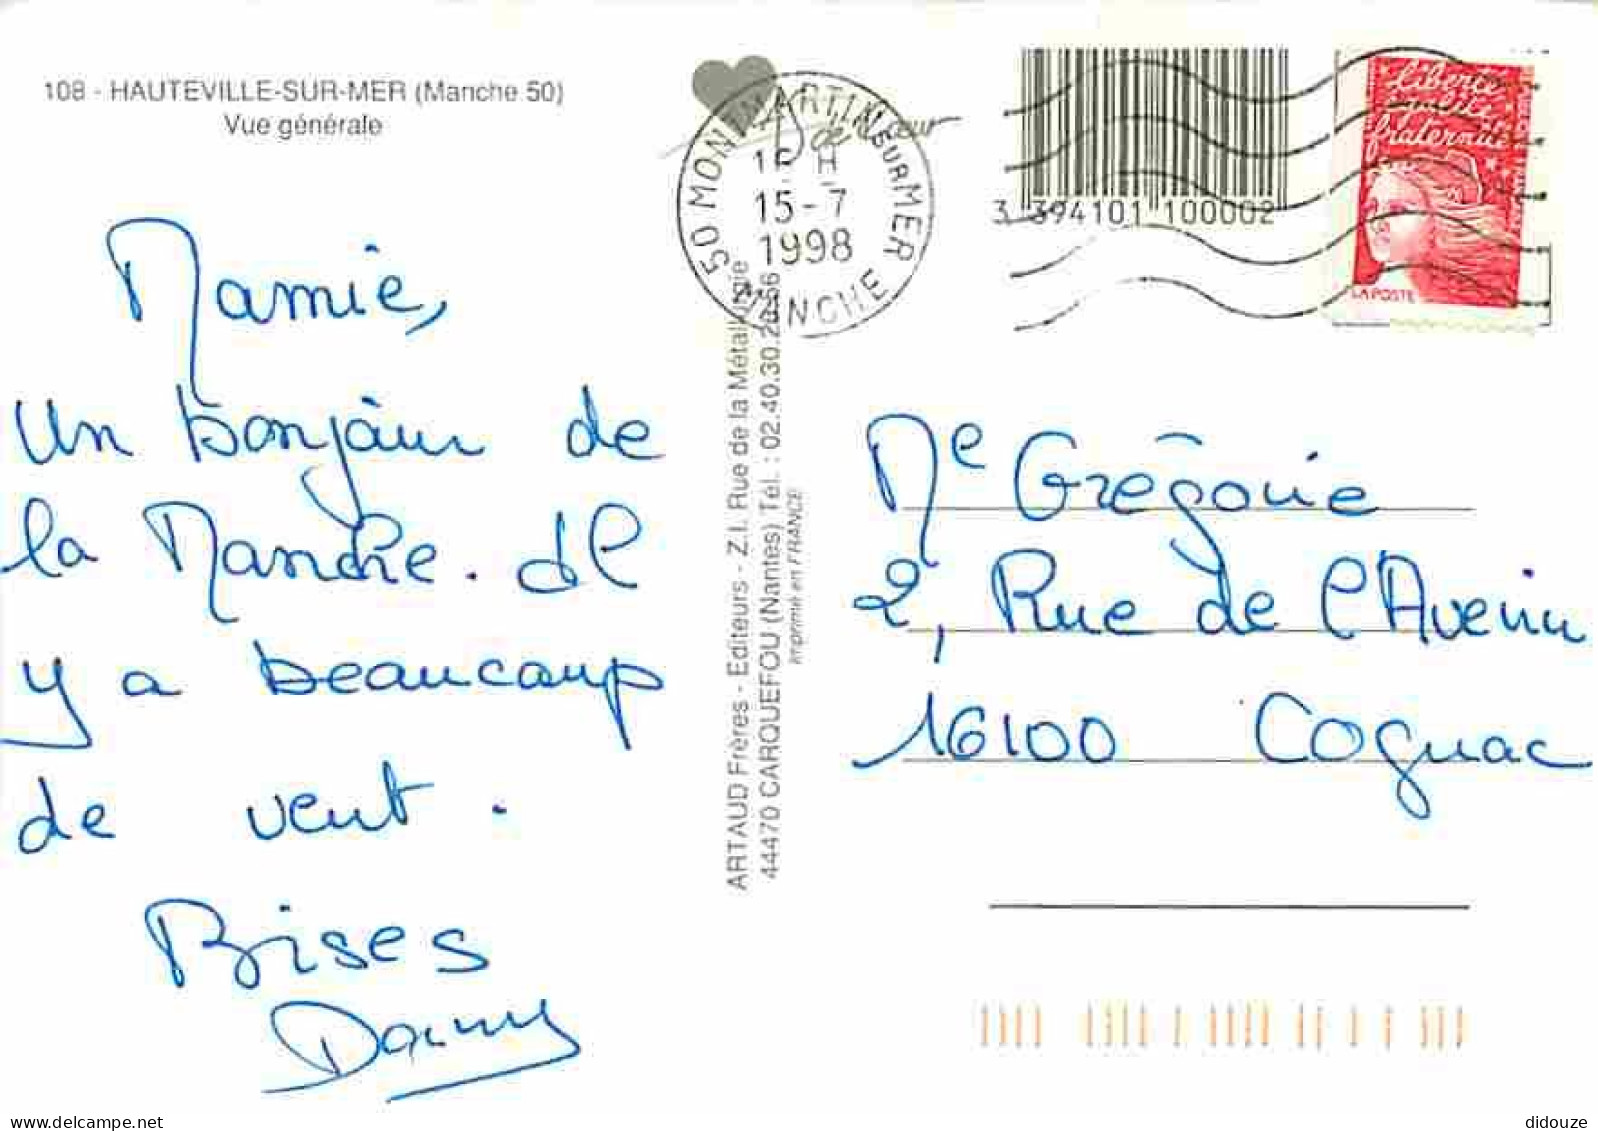 108 - HAUTEVILLE-SUR-MER (Manche 50)
Vue générale
Mamie,
un bonjour de
la Manche. Il
y a beaucoup
de vent.
Bises
Dany
ARTAUD Frères - Editeurs - Z.I. Rue de la Métallurgie
44470 CARQUEFOU (Nantes) Tél. : 02.40.30.
Imprimé en FRANCE
50 MONTMARTIN SUR MER
MANCHE
15-7
1998
3 394101 100002
Liberté
égalité
fraternité
LA POSTE
Me Grégoire
2, Rue de l'Avenir
16100 Cognac
delcampe.net
didouze